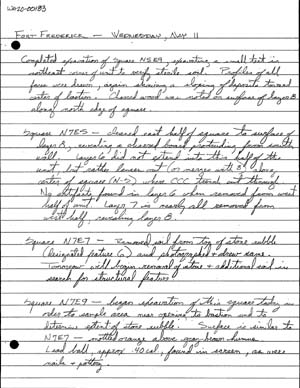 WA20-00183
FORT FREDERICK - WEDNESDAY, MAY 11
Completed excavation of Square N5E9, excavating a small test in
northeast corner of unit to verify sterile soil. Profiles of all
faces were drawn, again showing a sloping of deposits toward
center of bastion. Charred wood was noted on surface of Layer 8
along north edge of square.
Square N7E5 - cleared east half of square to surface of
Layer 8, revealing a charred board protruding from south
wall. Layer 6 did not extend into this half of the
unit, but rather
center of square (N-S), where
No artifacts found in Layer 6 when removed from west
half of unit. Layer 7 is nearly all removed from
west half, revealing Layer 8.
Square N7E7 - Removed soil from top of stone rubble
(designated feature 6) and photographed & drew same.
Tomorrow will begin removal of stone & additional soil in
search for structural features.
Square N7E9 - began excavation of this square today in
order to sample area near opening to bastion and to
determine extent of stone rubble. Surface is similar to
N7E7 - mottled orange above gray-brown humus.
Lead ball, approx .40 cal, found in screen, as were
nails & pottery.